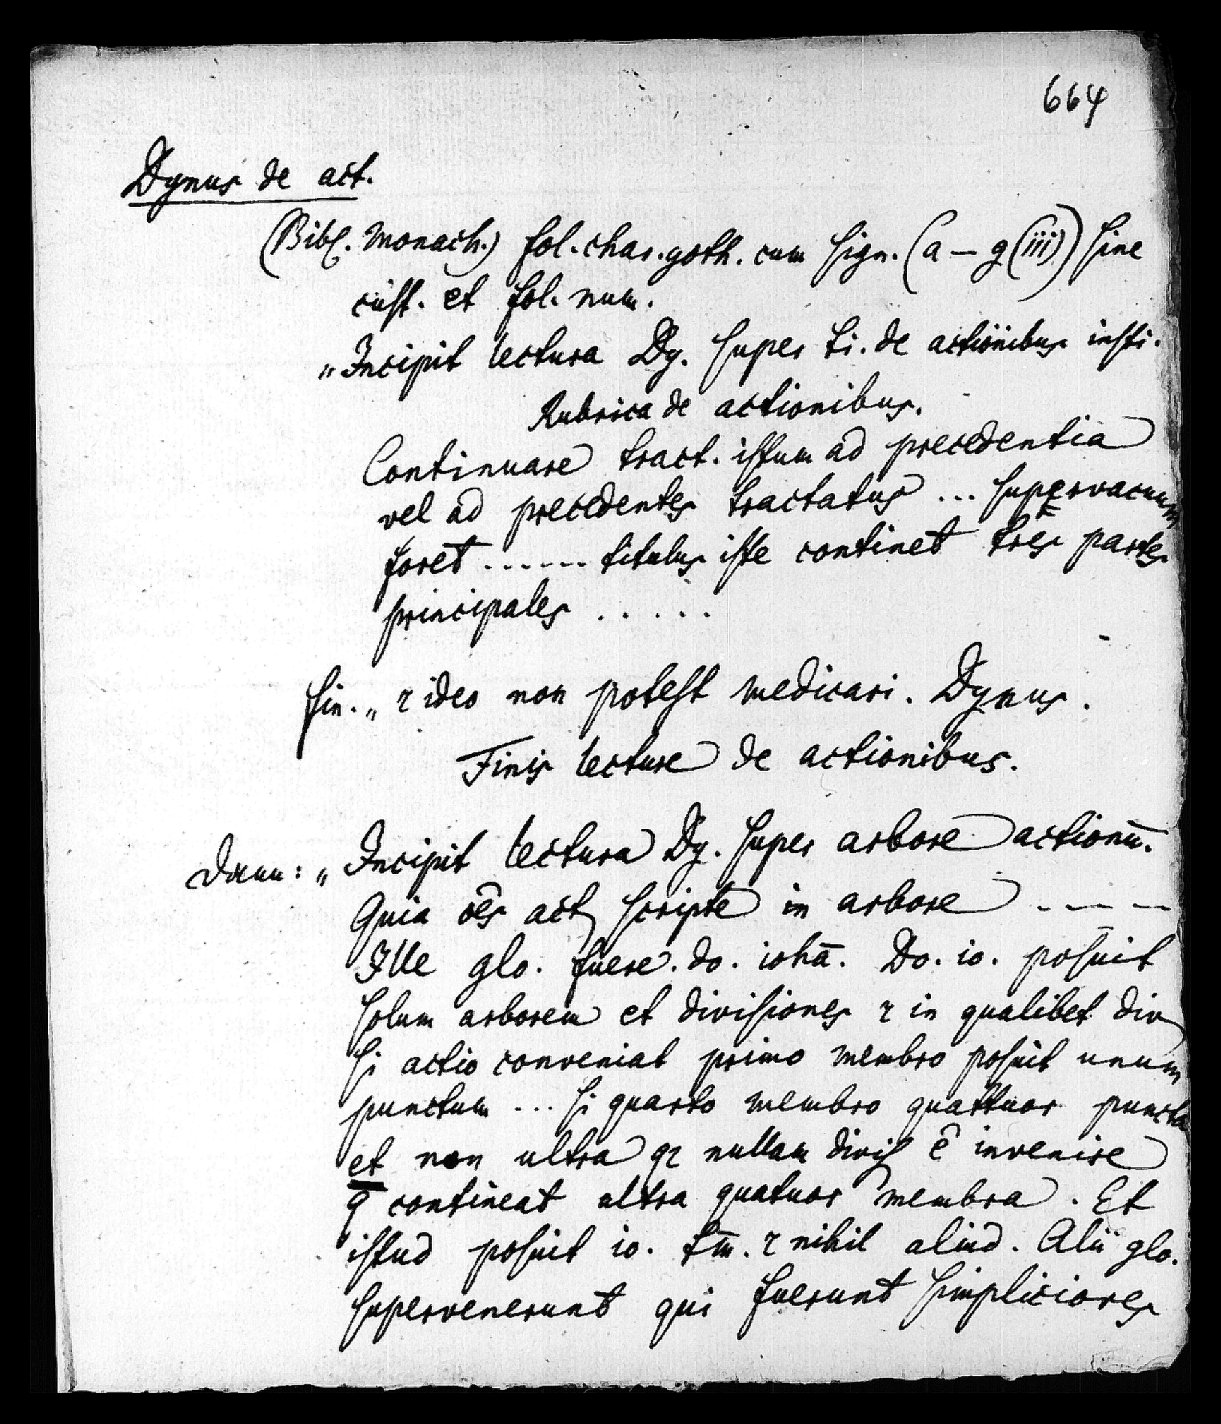 664
Dynus de act.
(Bibl. Monach.) fol. char. goth. cum sign. (a – g (iii)) sine
cust. et fol. num.
„Incipit lectura Dy. super ti. de actionibus insti.
Rubrica de actionibus.
Continuare tract. istum ad precedentia
vel ad precedentes tractatus ... supervacuum
foret ...... titulus iste continet tres partes
principales .....
fin. „ ⁊ ideo non potest medicari. Dynus.
Finis lecture de actionibus.
Dann: „Incipit lectura Dy. super arbore actionū.
Quia oēs act scripte in arbore ----
Ille glo. fuere. do. iohā. Do. io. posuit
solum arborem et divisiones ⁊ in qualibet div
si actio conveniat primo membro posuit unum
punctum ... si quarto membro quattuor puncta
et non ultra qr nullam divis ē invenire
q̄ contineat ultra quatuor membra. Et
istud posuit io. tm̄. ⁊ nihil aliud. Alii glo.
supervenerunt qui fuerunt simpliciores